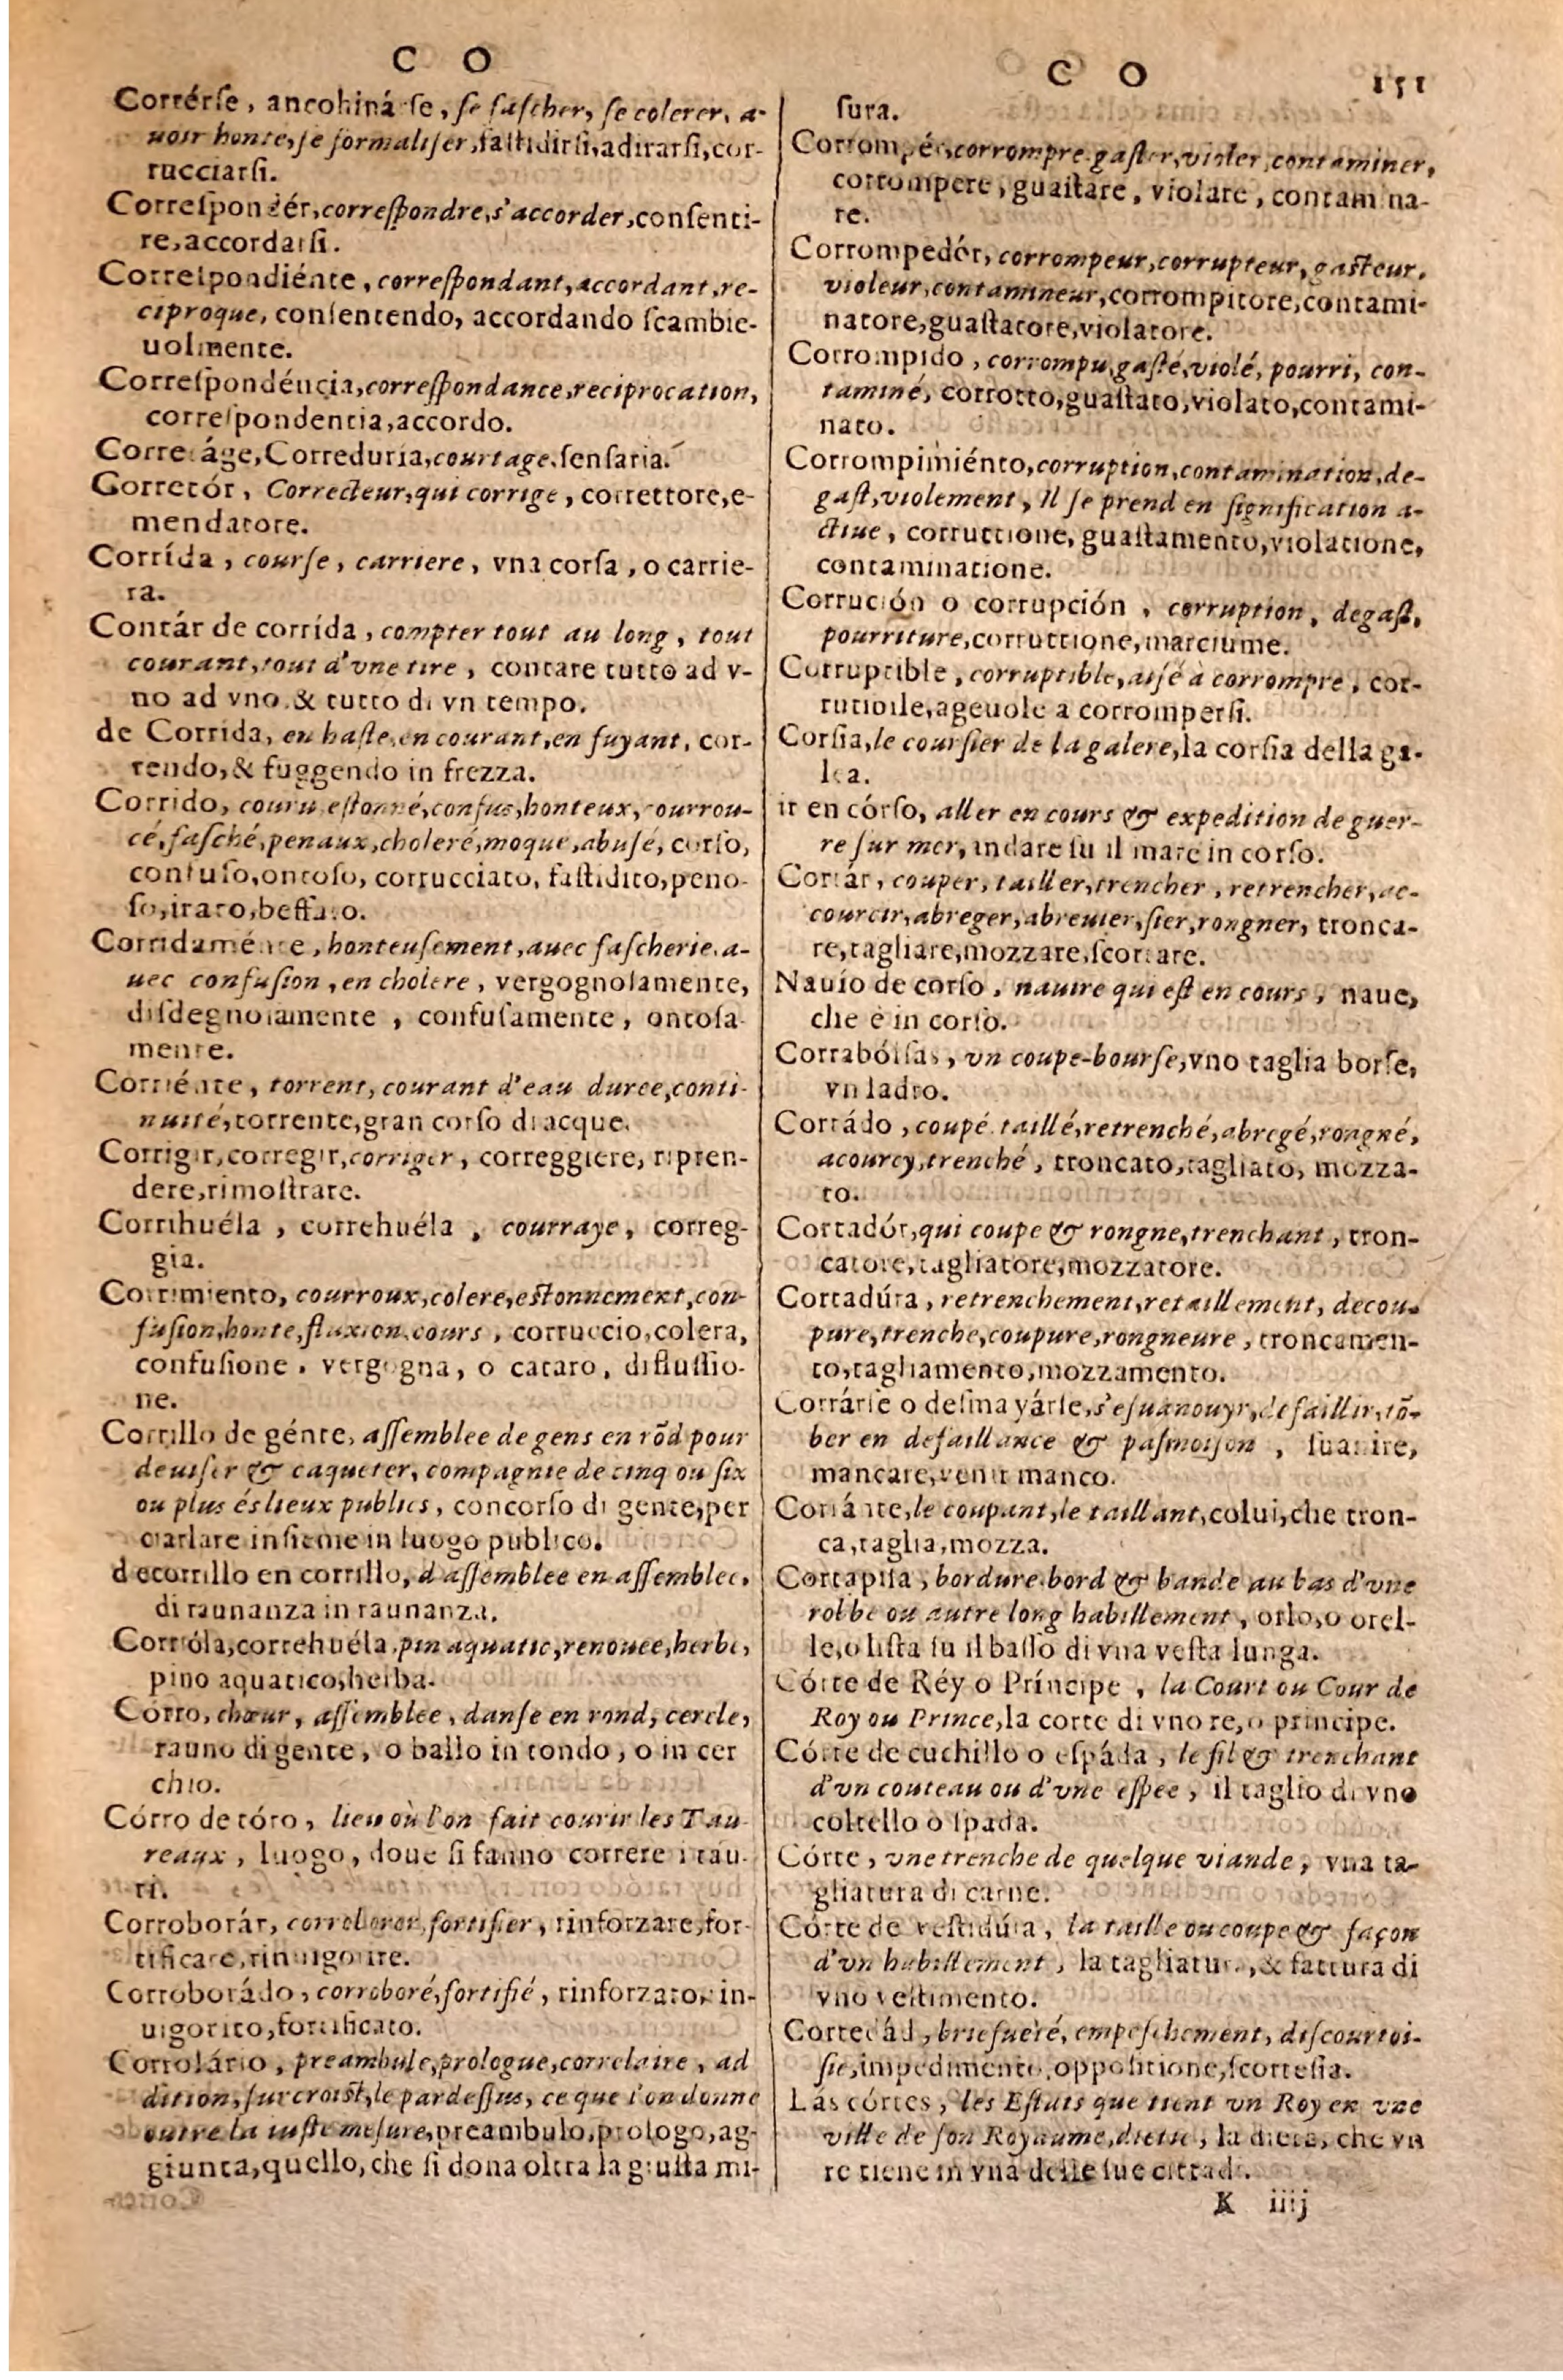 C O
Corrérſe, ancohiná ſe, ſe faſcher, ſe colerer, a-
uoir honte, ſe formaliſer, faſtidirſi, adirarſi, cor-
rucciarſi.
Correſpondér, correſpondre, s'accorder, conſenti-
re, accordarſi.
Correſpondiénte, correſpondant, accordant, re-
ciproque, conſentendo, accordando ſcambie-
uolmente.
Correſpondéncia, correſpondance, reciprocation,
correſpondentia, accordo.
Corretáge, Correduría, courtage, ſenſaria.
Corretór, Correcteur, qui corrige, correttore, e-
mendatore.
Corrída, courſe, carriere, vna corſa, o carrie-
ra.
Contár de corrída, compter tout au long, tout
courant, tout d'vne tire, contare tutto ad v-
no ad vno, & tutto di vn tempo.
de Corrida, en haſte, en courant, en fuyant, cor-
rendo, & fuggendo in frezza.
Corrido, couru, eſtonné, confus, honteux, courrou-
cé, faſché, penaux, choleré, moqué, abuſé, corſo,
confuſo, ontoſo, corrucciato, faſtidito, peno-
ſo, irato, beffato.
Corridaménte, honteuſement, auec faſcherie, a-
uec confuſion, en cholere, vergognoſamente,
diſdegnoſamente, confuſamente, ontoſa
mente.
Corriénte, torrent, courant d'eau duree, conti-
nuité, torrente, gran corſo di acque.
Corrigir, corregir, corriger, correggiere, ripren-
dere, rimoſtrare.
Corrihuéla, correhuéla, courraye, correg-
gia.
Corrimiento, courroux, colere, eſtonnement, con-
fuſion, honte, fluxion, cours, corruccio, colera,
confuſione, vergogna, o cataro, difluſſio-
ne.
Corrillo de génte, aſſemblee de gens en rõd pour
deuiſer & caqueter, compagnie de cinq ou ſix
ou plus és lieux publics, concorſo di gente, per
ciarlare inſieme in luogo publico.
de corrillo en corrillo, d aſſemblee en aſſemblee,
di raunanza in raunanza.
Corróla, correhuéla, pin aquatic, renouee, herbe,
pino aquatico, herba.
Córro, chœur, aſſemblee, danſe en rond, cercle,
rauno di gente, o ballo in tondo, o in cer
chio.
Córro de tóro, lieu où l'on fait courir les Tau-
reaux, luogo, doue ſi fanno correre i tau-
ri.
Corroborár, corroborer, fortifier, rinforzare, for-
tificare, rinuigorire.
Corroborádo, corroboré, fortifié, rinforzato, in-
uigorito, fortificato.
Corrolário, preambule, prologue, correlaire, ad
dition, ſurcroiſt, le pardeſſus, ce que l'on donne
outre la iuſte meſure, preambulo, prologo, ag-
giunta, quello, che ſi dona oltra la giuſta mi-
C O 151
ſura.
Corrompér, corrompre, gaſter, violer, contaminer,
corrompere, guaſtare, violare, contamina-
re.
Corrompedór, corrompeur, corrupteur, gaſteur,
violeur, contamineur, corrompitore, contami-
natore, guaſtatore, violatore.
Corrompido, corrompu, gaſté, violé, pourri, con-
taminé, corrotto, guaſtato, violato, contami-
nato.
Corrompimiénto, corruption, contamination, de-
gaſt, violement, Il ſe prend en ſignification a-
ctiue, corruttione, guaſtamento, violatione,
contaminatione.
Corrución o corrupción, corruption, degaſt,
pourriture, corruttione, marciume.
Corruptible, corruptible, aiſé à corrompre, cor-
rutibile, ageuole a corromperſi.
Corſia, le courſier de la galere, la corſia della ga-
lea.
ir en córſo, aller en cours & expedition de guer-
re ſur mer, andare ſu il mare in corſo.
Cortár, couper, tailler, trencher, retrencher, ac-
courcir, abreger, abreuier, ſier, rongner, tronca-
re, tagliare, mozzare, ſcortare.
Nauío de corſo, nauire qui eſt en cours, naue,
che è in corſo.
Cortabólſas, vn coupe-bourſe, vno taglia borſe,
vn ladro.
Cortádo, coupé, taillé, retrenché, abregé, rongné,
acourcy, trenché, troncato, tagliato, mozza-
to.
Cortadór, qui coupe & rongne, trenchant, tron-
catore, tagliatore, mozzatore.
Cortadúra, retrenchement, retaillement, decou-
pure, trenche, coupure, rongneure, troncamen-
to, tagliamento, mozzamento.
Cortárſe o deſmayárſe, s'eſuanouyr, defaillir, tõ-
ber en defaillance & paſmoiſon, ſuanire,
mancare, venir manco.
Cortánte, le coupant, le taillant, colui, che tron-
ca, taglia, mozza.
Cortapiſa, bordure, bord & bande au bas d'vne
robbe ou autre long habillement, orlo, o orel-
le, o liſta ſu il baſſo di vna veſta lunga.
Córte de Réy o Príncipe, la Court ou Cour de
Roy ou Prince, la corte di vno re, o principe.
Córte de cuchillo o eſpáda, le fil & trenchant
d'vn couteau ou d'vne eſpee, il taglio di vno
coltello o ſpada.
Córte, vne trenche de quelque viande, vna ta-
gliatura di carne.
Córte de veſtidúra, la taille ou coupe & façon
d'vn habillement, la tagliatura, & fattura di
vno veſtimento.
Cortedád, briefueté, empeſchement, diſcourtoi-
ſie, impedimento, oppoſitione, ſcorteſia.
Lás córtes, les Eſtats que tient vn Roy en vne
ville de ſon Royaume, diette, la dieta, che vn
re tiene in vna delle ſue cittadi.
K iiij